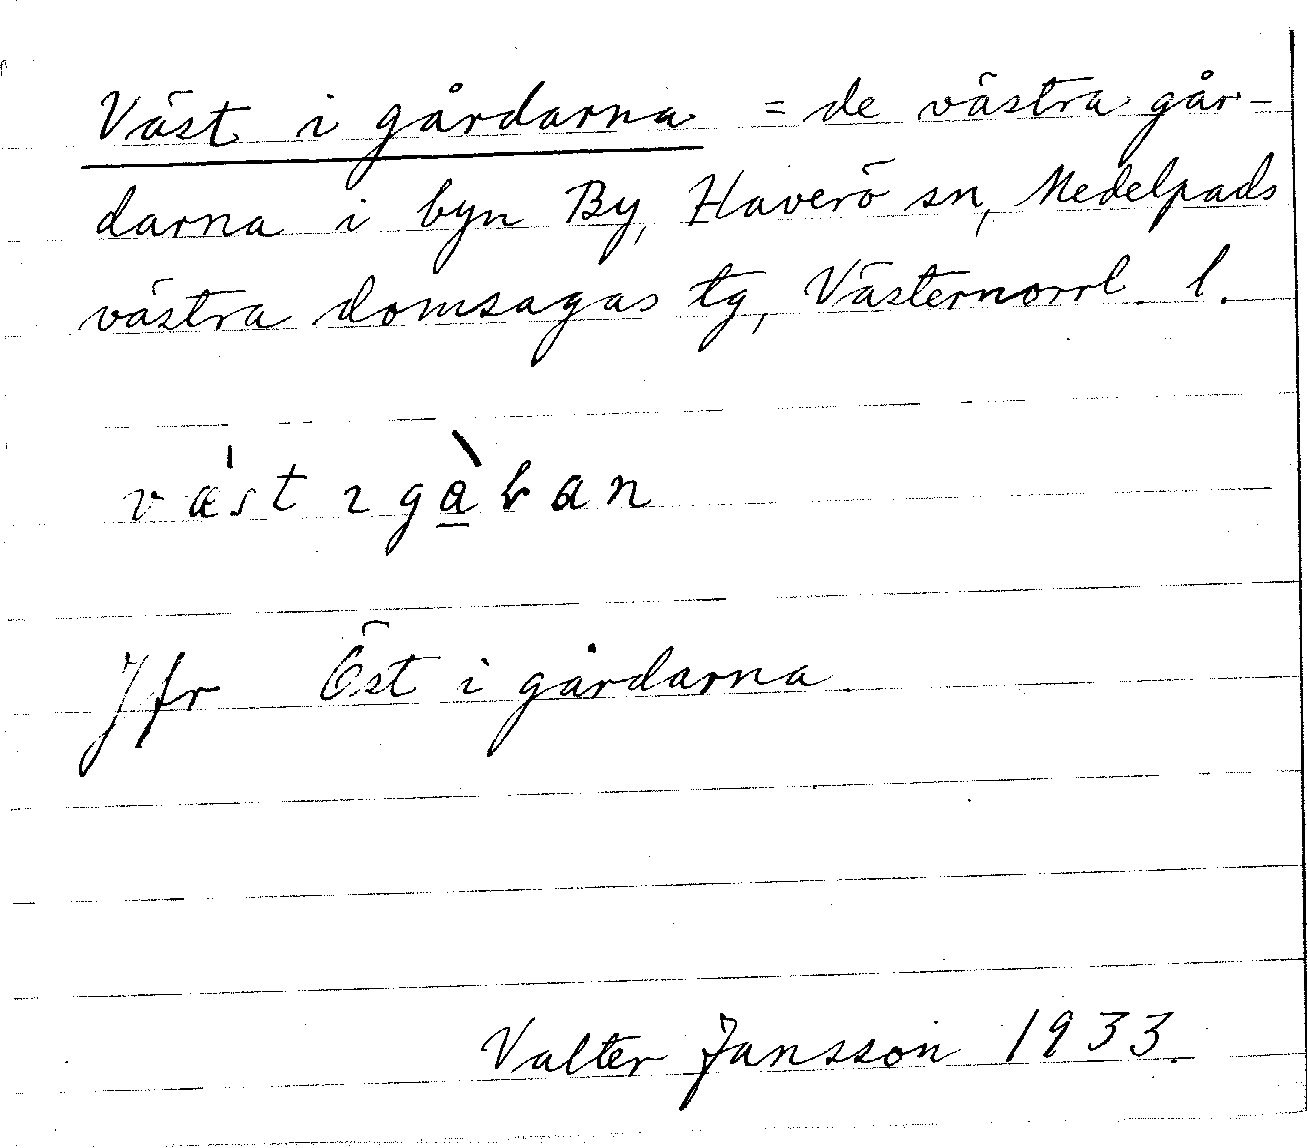 Väst i gårdarna = de västra går-
darna i byn By, Haverö sn, Medelpads
västra domsagas tg, Västernorrl. l.
væ̍st ɪ gàƚan
Jfr Öst i gårdarna
Valter Jansson 1933.